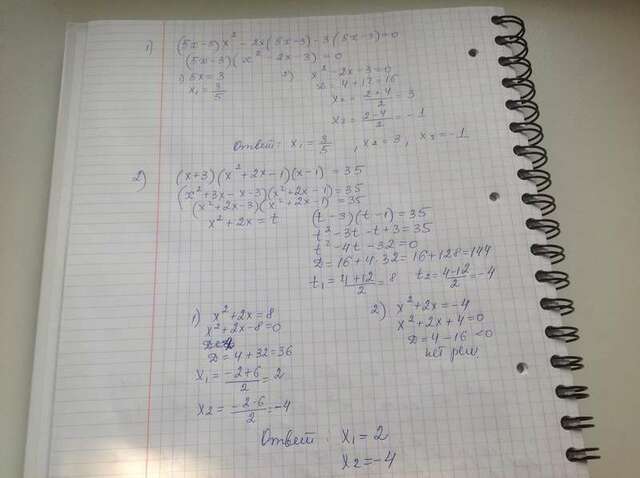 1) (5x-3)x² - 2x(5x-3) - 3(5x-3)=0
(5x-3)(x² - 2x - 3) = 0
1) 5x = 3
x₁ = 3/5
2) x² - 2x - 3 = 0
D = 4+12 = 16
x₂ = (2+4)/2 = 3
x₃ = (2-4)/2 = -1
Ответ: x₁ = 3/5, x₂ = 3, x₃ = -1
2) (x+3)(x² + 2x - 1)(x - 1) = 35
(x² + 3x - x - 3)(x² + 2x - 1) = 35
(x² + 2x - 3)(x² + 2x - 1) = 35
x² + 2x = t
(t - 3)(t - 1) = 35
t² - 3t - t + 3 = 35
t² - 4t - 32 = 0
D = 16 + 4·32 = 16 + 128 = 144
t₁ = (4+12)/2 = 8 t₂ = (4-12)/2 = -4
1) x² + 2x = 8
x² + 2x - 8 = 0
D = 4 + 32 = 36
x₁ = (-2+6)/2 = 2
x₂ = (-2-6)/2 = -4
2) x² + 2x = -4
x² + 2x + 4 = 0
D = 4 - 16 < 0
нет реш.
Ответ: x₁ = 2
x₂ = -4